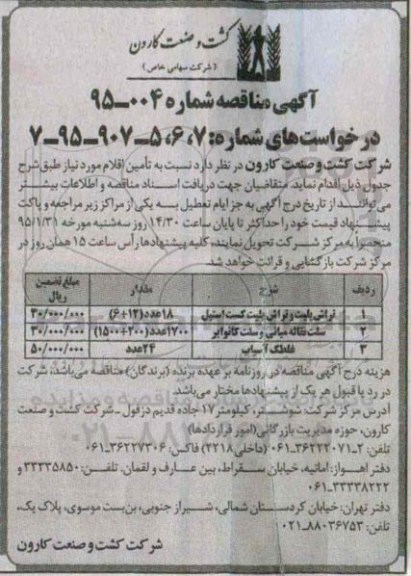 کشت و صنعت کارون
(شرکت سهامی خاص)
آگهی مناقصه شماره ۰۰۴-۹۵
درخواست‌های شماره: ۷، ۶، ۵-۹۰۷-۹۵-۷
شرکت کشت و صنعت کارون در نظر دارد نسبت به تأمین اقلام مورد نیاز طبق شرح
جدول ذیل اقدام نماید. متقاضیان جهت دریافت اسناد مناقصه و اطلاعات بیشتر
می‌توانند از تاریخ درج آگهی به جز ایام تعطیل به یکی از مراکز زیر مراجعه و پاکت
پیشنهاد قیمت خود را حداکثر تا پایان ساعت ۱۴/۳۰ روز سه‌شنبه مورخه ۹۵/۱/۳۱
منحصراً به مرکز شرکت تحویل نمایند، کلیه پیشنهادها رأس ساعت ۱۵ همان روز در
مرکز شرکت بازگشایی و قرائت خواهد شد.
ردیف شرح مقدار مبلغ تضمین ریال
۱ تراش پلیت و تراش پلیت کست استیل ۱۸عدد(۱۲+۶) ۳۰/۰۰۰/۰۰۰
۲ سلت نقاله میانی و سلت کانوایر ۱۷۰۰عدد(۲۰۰+۱۵۰۰) ۳۰/۰۰۰/۰۰۰
۳ غلطک آسیاب ۲۴عدد ۵۰/۰۰۰/۰۰۰
هزینه درج آگهی مناقصه در روزنامه بر عهده برنده (برندگان) مناقصه می‌باشد، شرکت
در رد یا قبول هر یک از پیشنهادها مختار می‌باشد.
آدرس مرکز شرکت: شوشتر، کیلومتر ۱۷ جاده قدیم دزفول _ شرکت کشت و صنعت
کارون، حوزه مدیریت بازرگانی (امور قراردادها)
تلفن: ۲_۳۶۲۲۲۰۷۱-۰۶۱ (داخلی ۲۲۱۸) فاکس: ۳۶۲۲۷۳۰۶-۰۶۱
دفتر اهواز: امانیه، خیابان سقراط، بین عارف و لقمان، تلفن: ۳۳۳۳۵۸۵۰ و
۳۳۳۳۸۲۲۲-۰۶۱
دفتر تهران: خیابان کردستان شمالی، شیراز جنوبی، بن‌بست موسوی، پلاک یک،
تلفن: ۸۸۰۳۶۷۵۳-۰۲۱
شرکت کشت و صنعت کارون